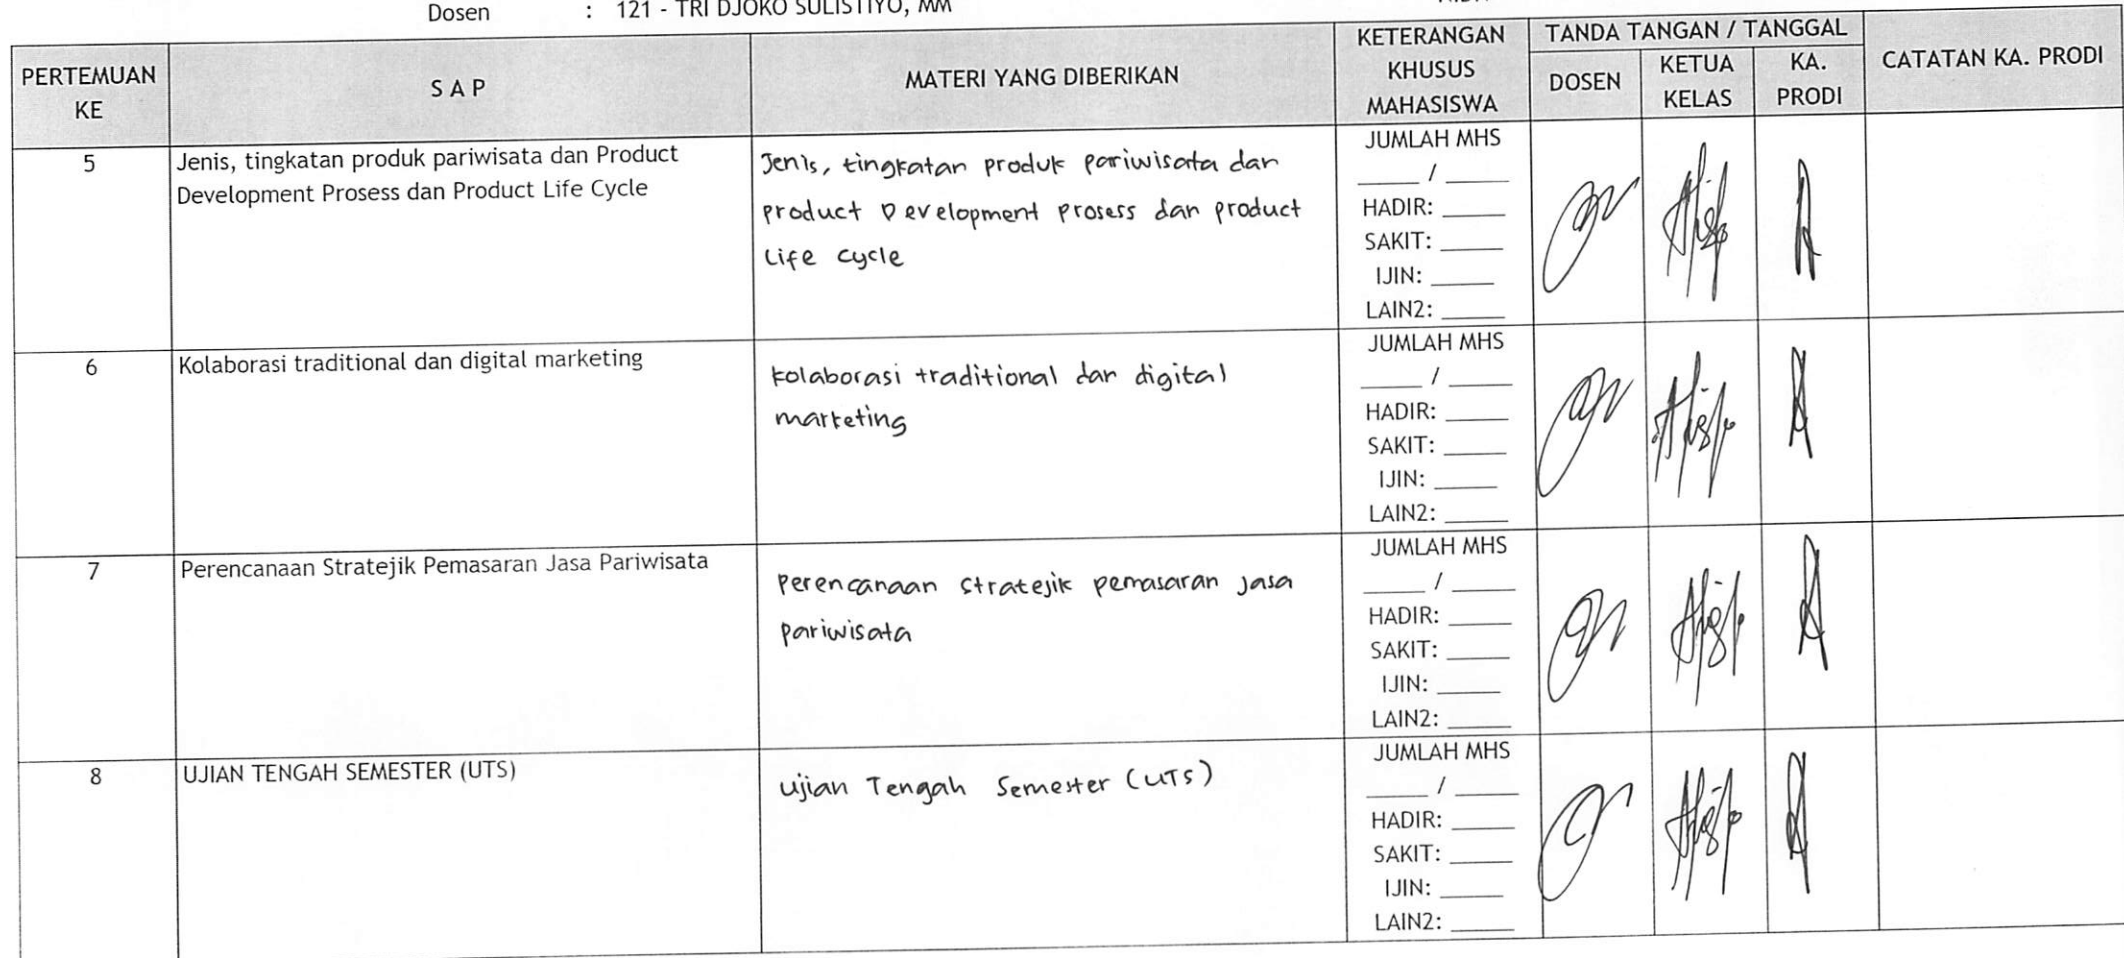 Dosen : 121 - TRI DJOKO SULISTIYO, MM
PERTEMUAN KE
S A P
MATERI YANG DIBERIKAN
KETERANGAN KHUSUS MAHASISWA
TANDA TANGAN / TANGGAL
DOSEN
KETUA KELAS
KA. PRODI
CATATAN KA. PRODI
5
Jenis, tingkatan produk pariwisata dan Product
Development Prosess dan Product Life Cycle
Jenis, tingkatan produk pariwisata dan
product Development prosess dan product
Life cycle
JUMLAH MHS
____ / ____
HADIR: ____
SAKIT: ____
IJIN: ____
LAIN2: ____
6
Kolaborasi traditional dan digital marketing
kolaborasi traditional dan digital
marketing
JUMLAH MHS
____ / ____
HADIR: ____
SAKIT: ____
IJIN: ____
LAIN2: ____
7
Perencanaan Stratejik Pemasaran Jasa Pariwisata
Perencanaan stratejik pemasaran jasa
pariwisata
JUMLAH MHS
____ / ____
HADIR: ____
SAKIT: ____
IJIN: ____
LAIN2: ____
8
UJIAN TENGAH SEMESTER (UTS)
Ujian Tengah Semester (UTS)
JUMLAH MHS
____ / ____
HADIR: ____
SAKIT: ____
IJIN: ____
LAIN2: ____